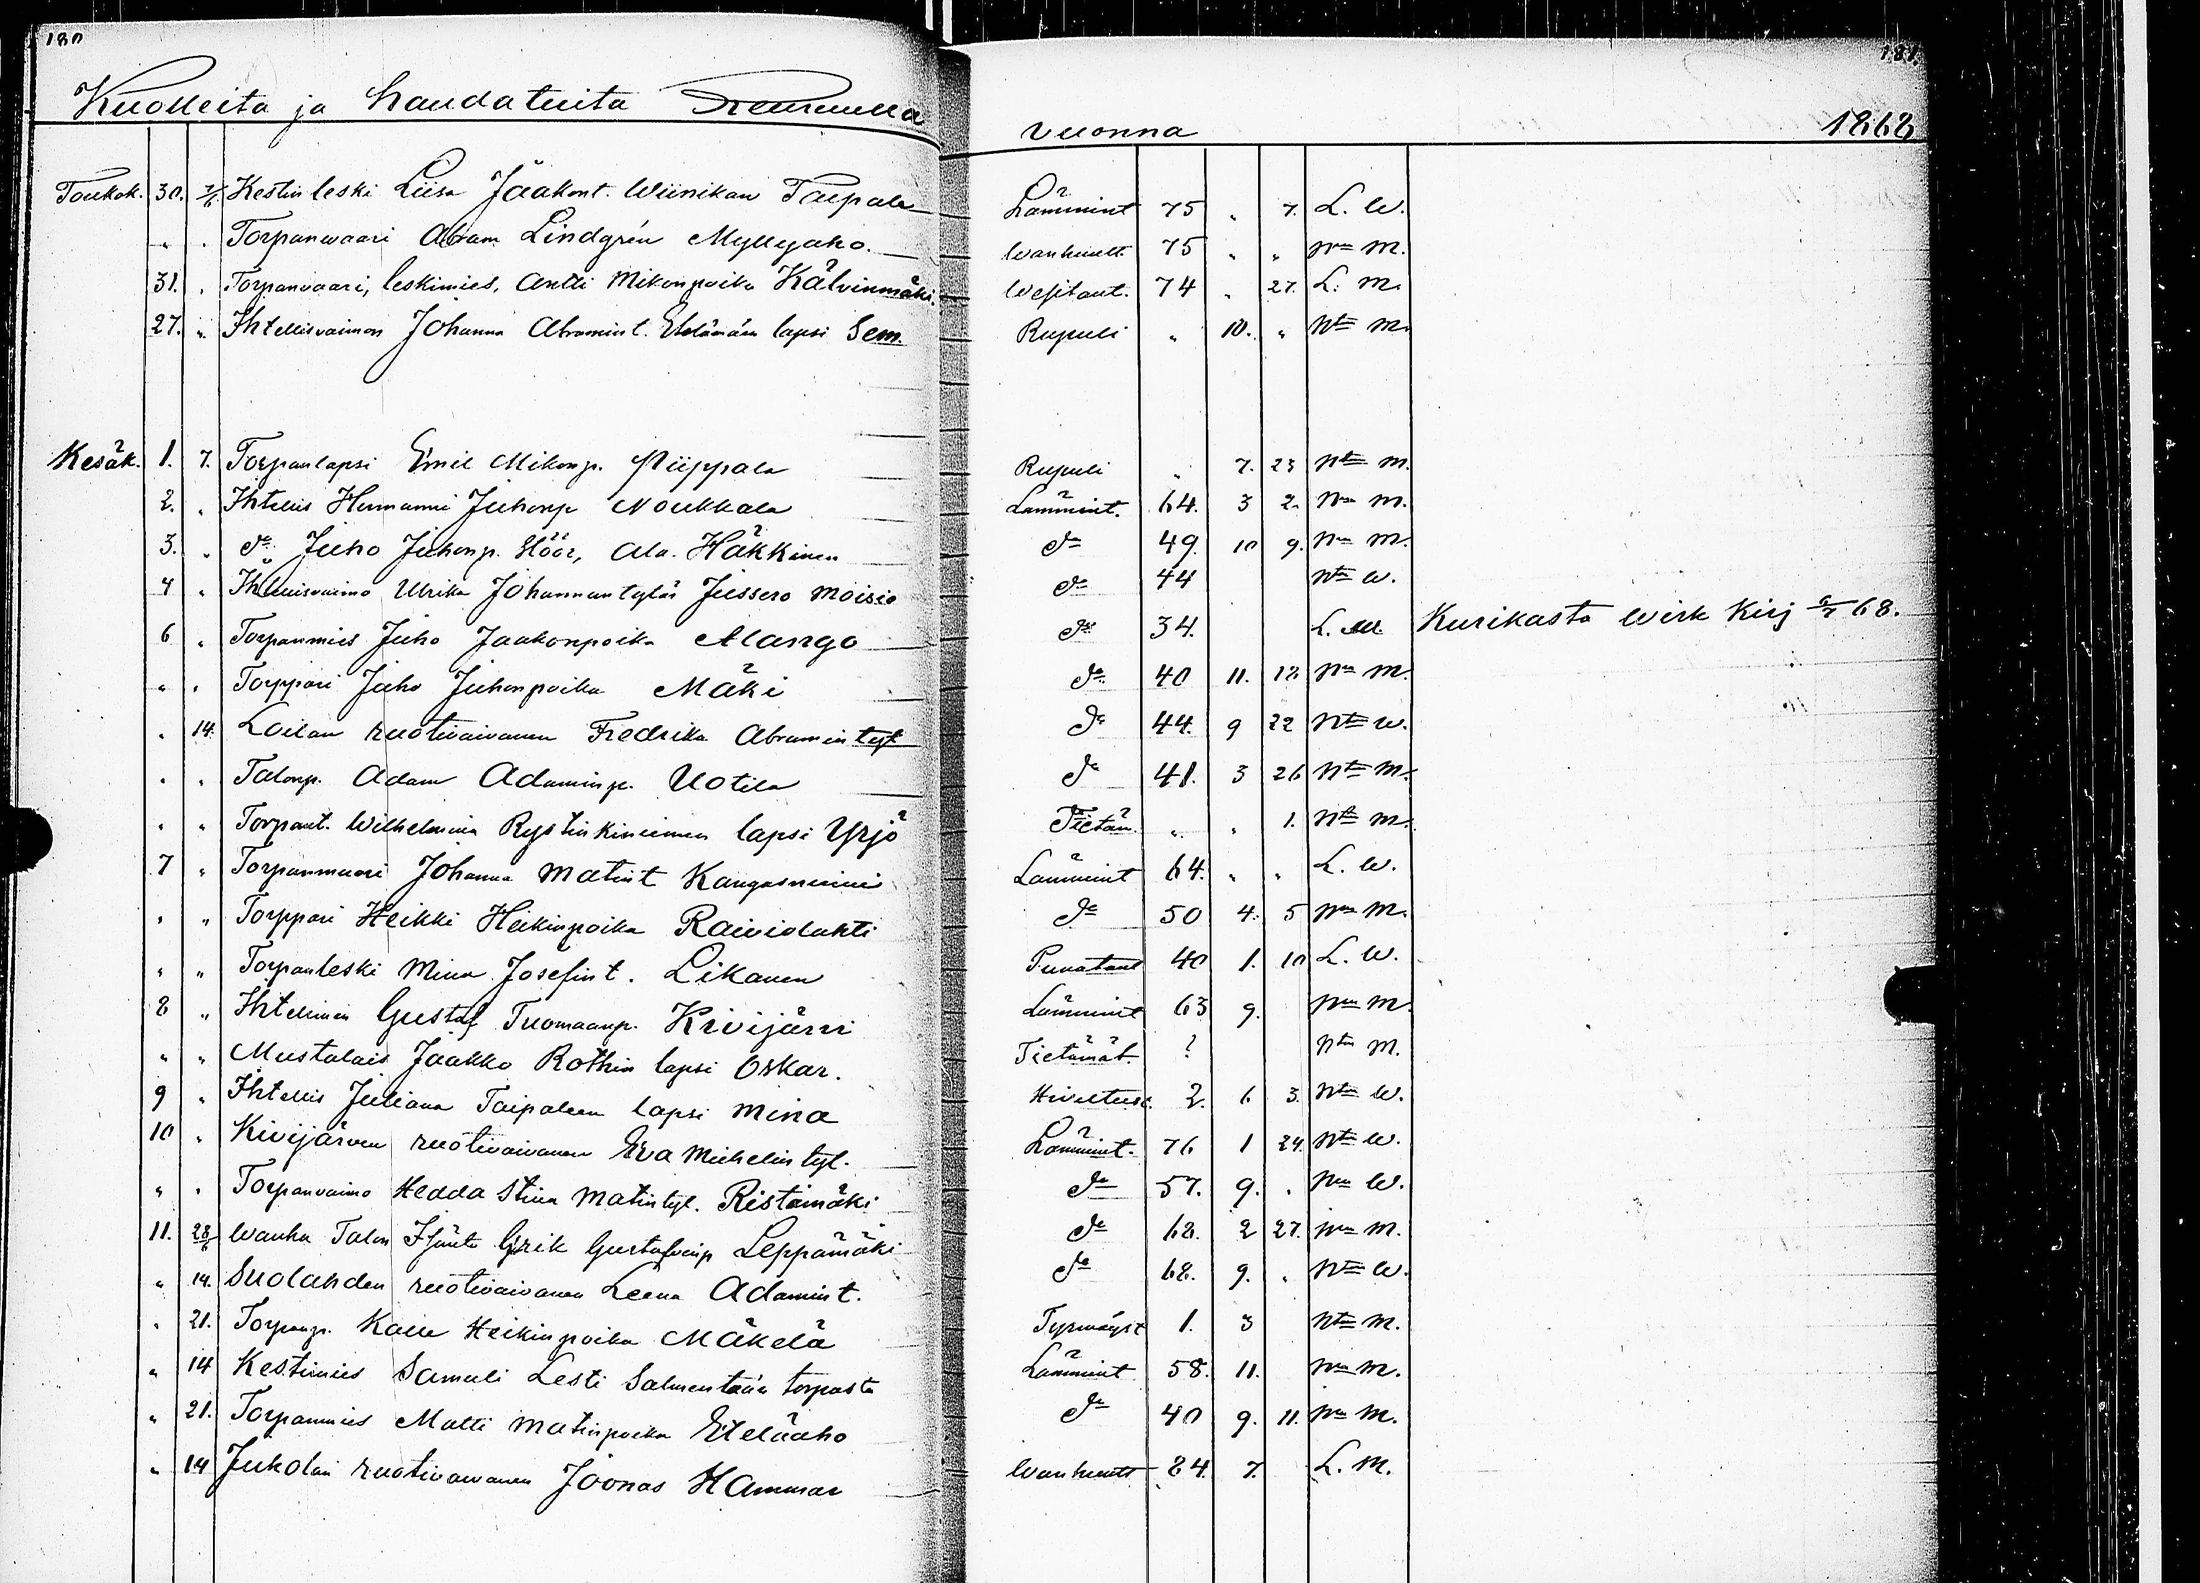 180
181.
Kuolleita ja haudatuita Keuruulla vuonna 1868
Toukok. 30. 7/6 Kestin leski Liisa Jaakont. Wiinikan Taipale Lämmint 75 „ 7. L. W.
„ „ Torpanwaari Abram Lindgrén Myllyaho. Wanhuutt. 75 „ „ Nn M.
31. „ Torpanvaari, leskimies, Antti Mikonpoika Kälvinmäki. Wesitaut. 74 „ 27. L. M.
27. „ Ihtellisvaimon Johanna Abramint. lapsi Sem. Rupuli „ 10. „ Ntn M.
Kesäk. 1. 7. Torpanlapsi Emil Mikonp. Piippala Rupuli „ 7. 23 Ntn M.
2. „ Ihtellis Hermanni Juhonp Noukkala Lämmint. 64. 3 2. Nn M.
3. „ do Juho Juhonp. Höör, Ala. Häkkinen do 49. 10 9. Nn M.
4 „ Ihtellisvaimo Ulrika Johannantytär Jussero Moisio do 44 Ntn W.
6 „ Torpanmies Juho Jaakonpoika Alango do 34. L. M. Kurikasta Wirk Kirj 68.
„ „ Torppari Juho Juhonpoika Mäki do 40 11. 12 Nn M.
„ 14. Loilan ruotivaivanen Fredrika Abramintyt do 44. 9 22 Ntn W.
„ „ Talonp. Adam Adaminp. Uotila do 41. 3 26 Ntn M.
„ „ Torpant. Wilhelmina lapsi Yrjö Tietäm. „ „ 1. Ntn M.
7 „ Torpanmuori Johanna Matint Kangasniemi Lämmint 64. „ „ L. W.
„ „ Torppari Heikki Heikinpoika Raiviolahti do 50 4. 5 Nn M.
„ „ Torpanleski Miina Josefint. Likanen Punataut 40 1. 10 L. W.
8 „ Ihtellinen Gustaf Tuomaanp. Kivijärvi Lämmint 63 9. Nn M
„ „ Mustalais Jaakko Rothin lapsi Oskar. Tietämät. ? Ntn M.
9 „ Ihtellis Juliana Taipaleen lapsi Mina 2. 6 3. Ntn W.
10 „ Kivijärven ruotivaivanen Eva Mickelintyt. Lämmint. 76 1 24. Ntn W.
„ „ Torpanvaimo Hedda Stiina Matintyt. Ristimäki do 57. 9. „ Nn W.
11. 28/6 Wanha Talon Isäntä Erik Gustafvinp Leppämäki do 62. 2 27. Nn M.
„ 14. Suolahden ruotivaivanen Leena Adamint. do 68. 9. „ Ntn W.
„ 21. Torpanp. Kalle Heikinpoika Mäkelä 1. 3 Ntn M.
„ 14 Kestimies Samuli Lesti torpasta Lämmint 58. 11. Nn M.
„ 21. Torpanmies Matti Matinpoika Eteläaho do 40 9. 11. Nn M.
„ 14 Jukolan ruotivaivanen Joonas Hammar Wanhuutt 84. 7. L. M.